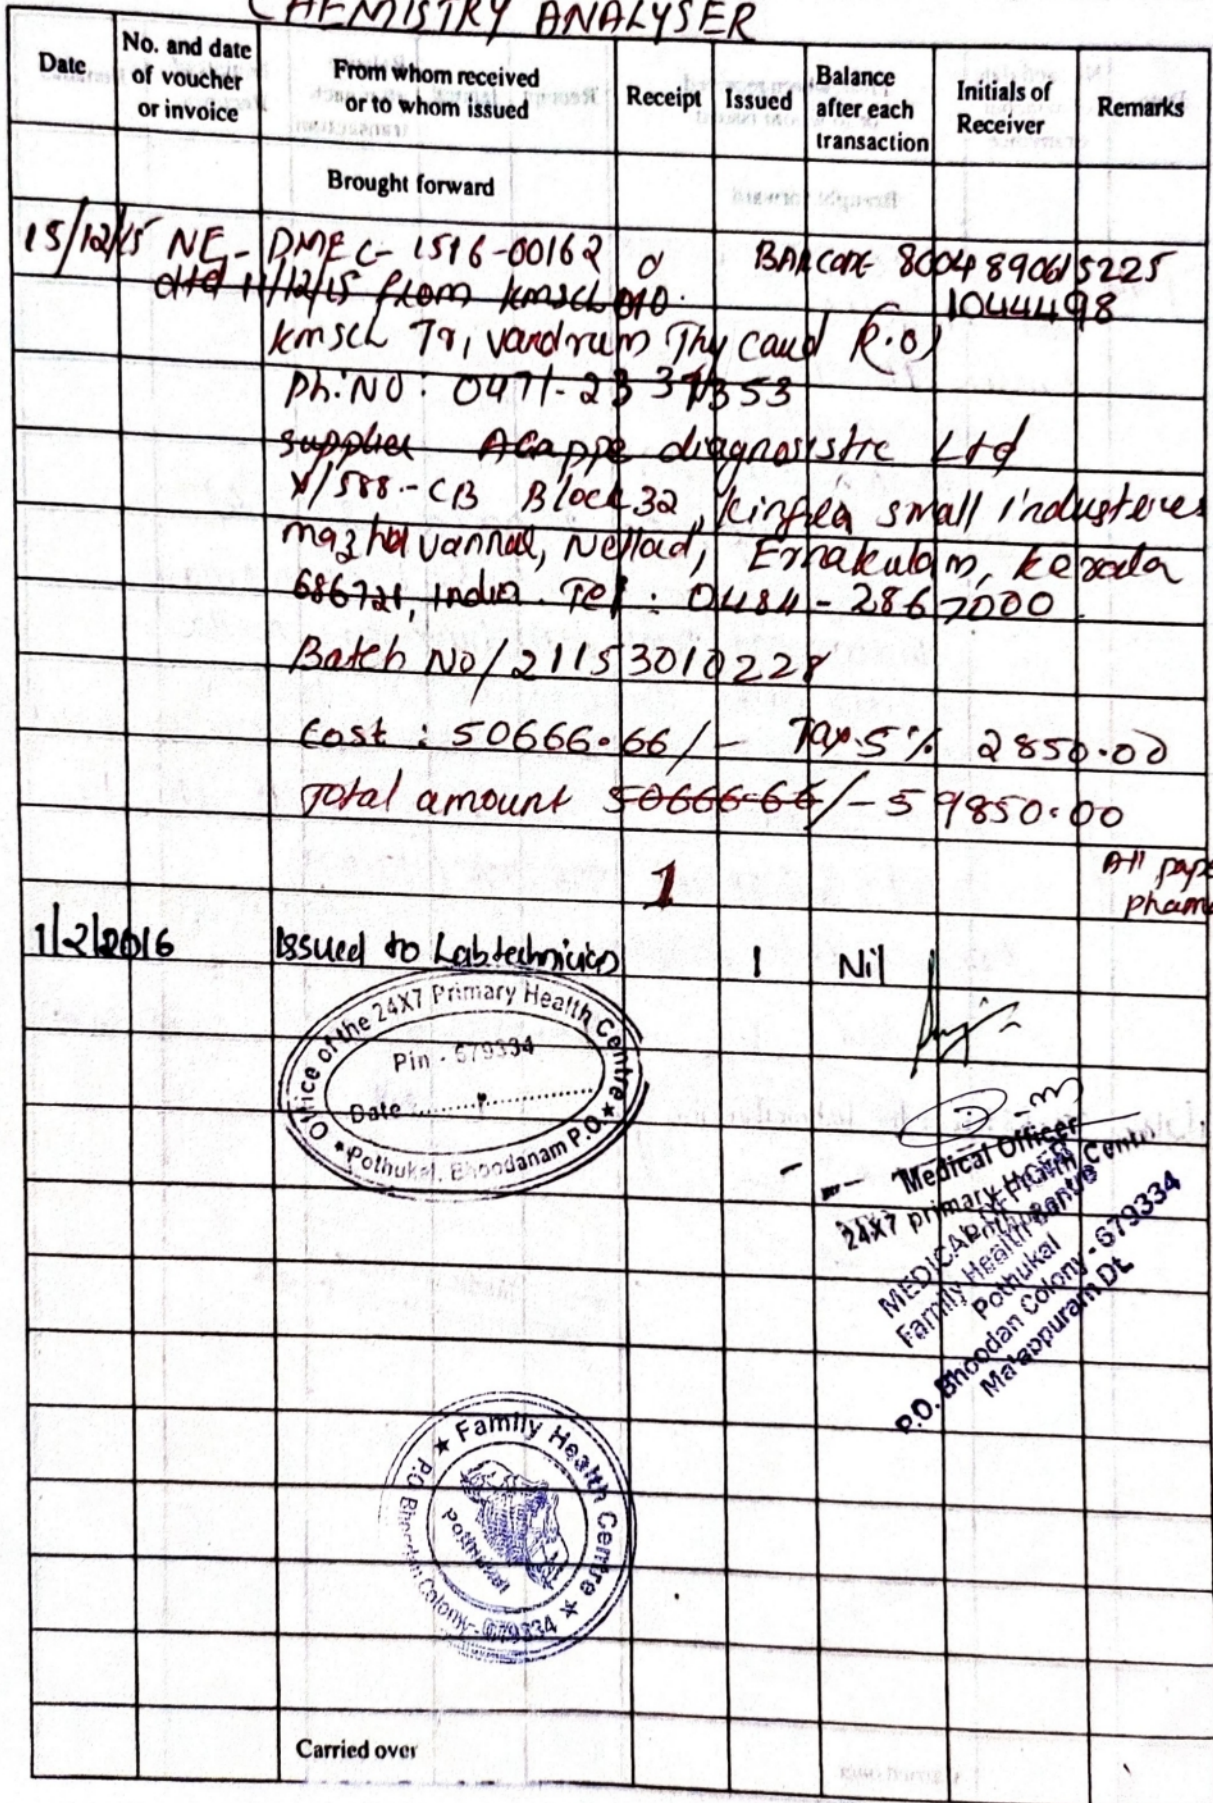 CHEMISTRY ANALYSER
Date
No. and date of voucher or invoice
From whom received or to whom issued
Receipt
Issued
Balance after each transaction
Initials of Receiver
Remarks
Brought forward
15/12/15 NE-DMEC-1516-00162 BARCODE 8004890615225
dtd 11/12/15 from kmscl 1044498
kmscl Trivandrum Thycaud P.O)
Ph:NO: 0471-23 37353
supplier AGappe diagnosistic Ltd
X/588.-CB Block 32, kinfra small industeres
mazhuvannal, Nellad, Ernakulam, kerala
686721, India. Tel: 0484-2867000
Batch No/ 21153010228
Cost : 50666.66/- Tax.5% 2850.00
Total amount 50666.66/- 59850.00
1 All pape
pharma
1/2/2016 Issued to Labtechnician 1 Nil
Office of the 24X7 Primary Health Centre
Pin - 679334
Date
Pothukal, Bhoodanam P.O.
Medical Officer
24X7 primary Health Centre
MEDICAL OFFICER
Family Health Centre
Pothukal
P.O. Bhoodan Colony - 679334
Malappuram Dt.
Family Health Centre
Pothukal
P.O. Bhoodan Colony - 679334
Carried over